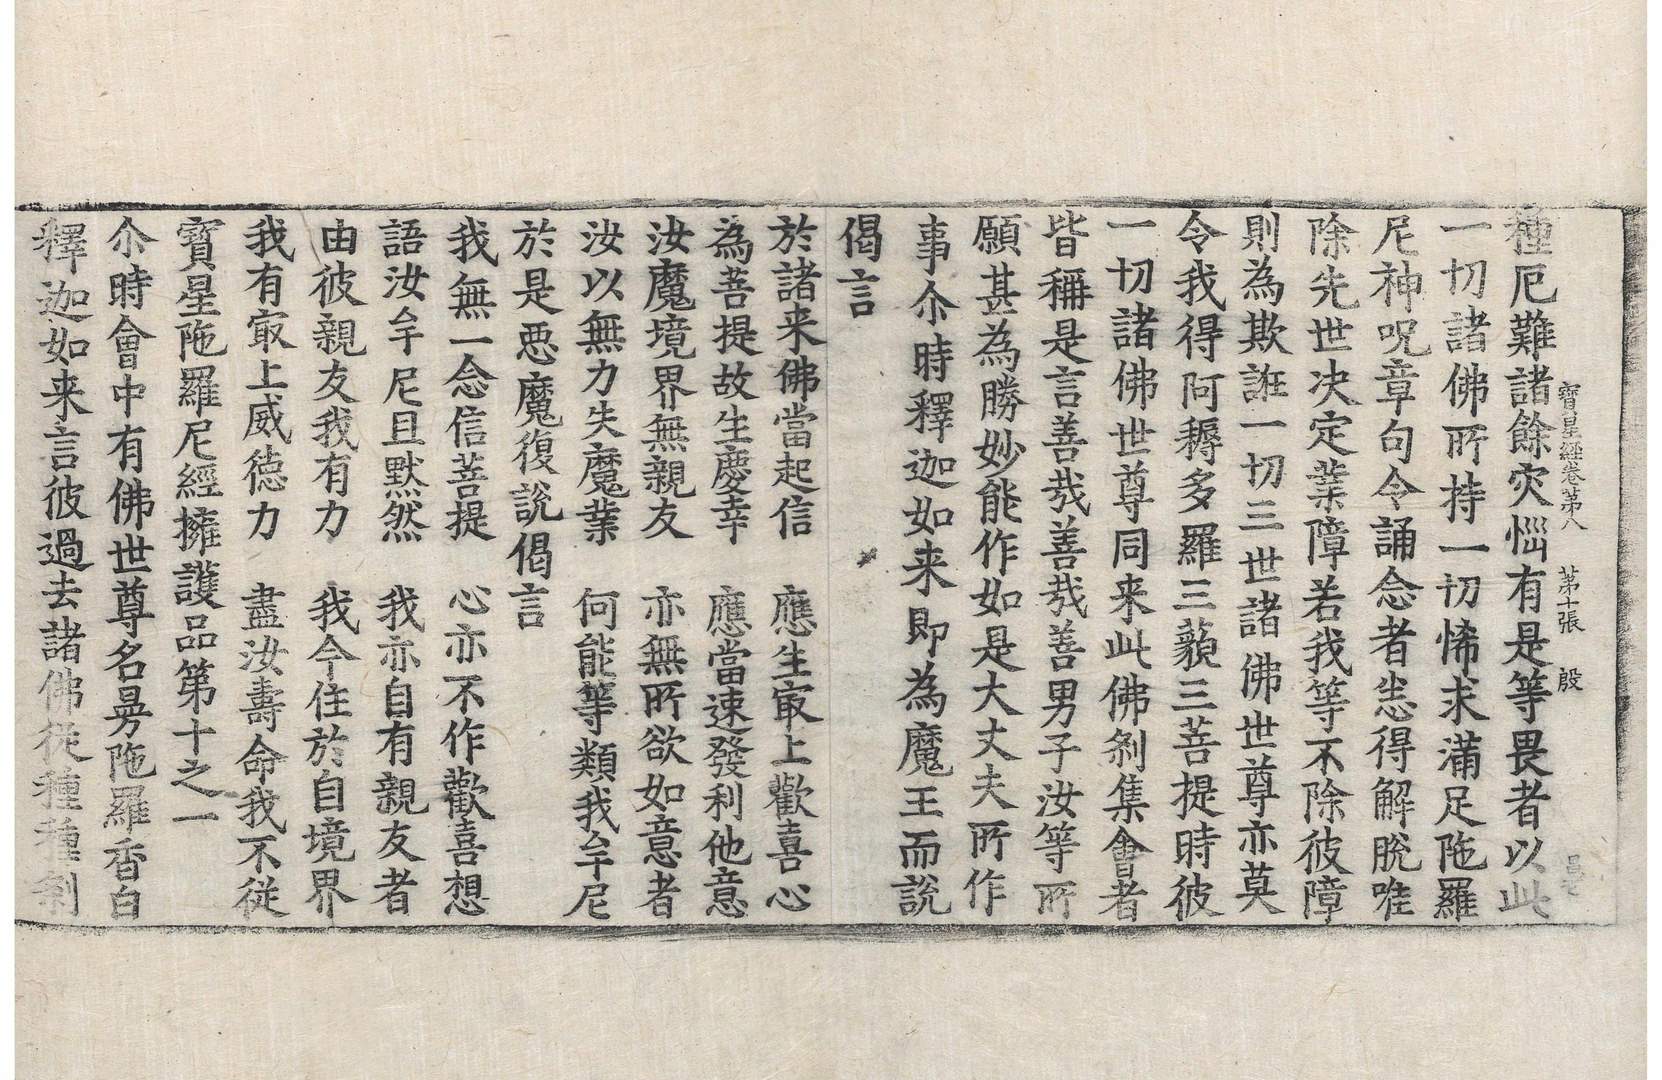 寶星經卷第八　第十張　殷
種厄難諸餘灾惱有是等畏者以此
一切諸佛所持一切悕求滿足陁羅
尼神呪章句令誦念者悉得解脫唯
除先世决定業障若我等不除彼障
則為欺誑一切三世諸佛世尊亦莫
令我得阿耨多羅三藐三菩提時彼
一切諸佛世尊同来此佛刹集會者
皆稱是言善哉善哉善男子汝等所
願甚為勝妙能作如是大丈夫所作
事尒時釋迦如来即為魔王而說
偈言
於諸来佛當起信　應生冣上歡喜心
為菩提故生慶幸　應當速發利他意
汝魔境界無親友　亦無所欲如意者
汝以無力失魔業　何能等類我牟尼
於是惡魔復說偈言
我無一念信菩提　心亦不作歡喜想
語汝牟尼且默然　我亦自有親友者
由彼親友我有力　我今住於自境界
我有冣上威德力　盡汝壽命我不從
寶星陁羅尼經擁護品第十之一
尒時會中有佛世尊名曼陁羅香白
釋迦如来言彼過去諸佛從種種刹